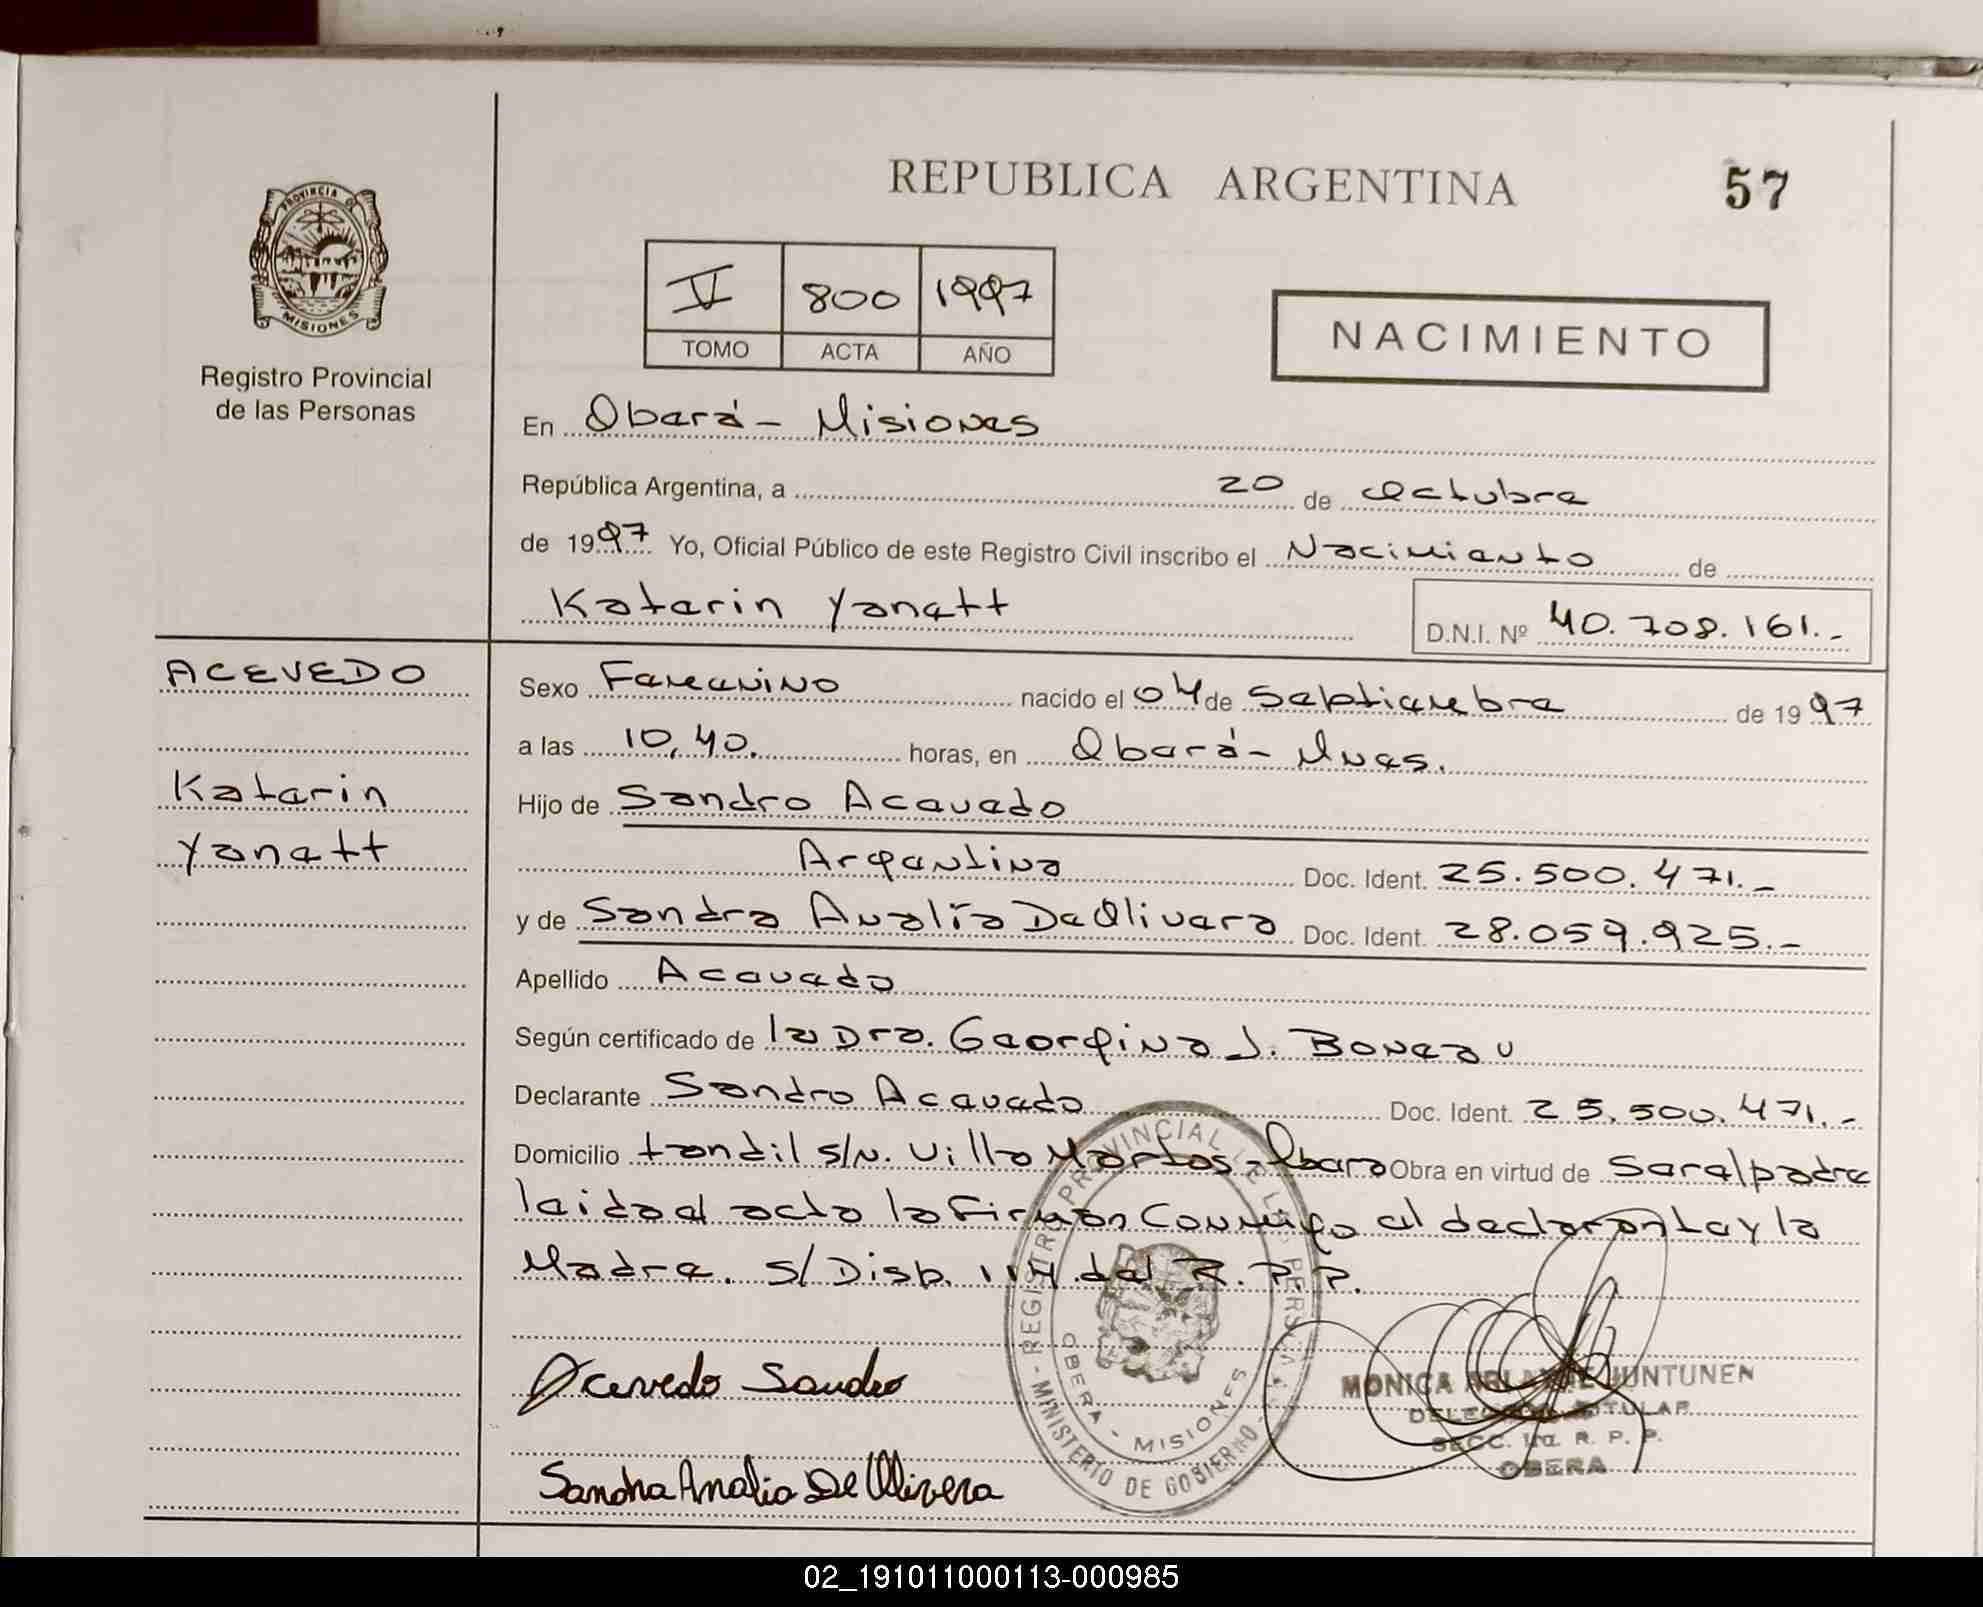 REPUBLICA ARGENTINA
57
PROVINCIA DE
MISIONES
Registro Provincial
de las Personas
V 800 1997
TOMO ACTA AÑO
NACIMIENTO
En Oberá - Misiones
República Argentina, a 20 de Octubre
de 1997 Yo, Oficial Público de este Registro Civil inscribo el Nacimiento de
Katerin Yanett
D.N.I. Nº 40.708.161.-
ACEVEDO
Katerin
Yanett
Sexo Femenino nacido el 04 de Septiembre de 1997
a las 10,40. horas, en Oberá - Mnes.
Hijo de Sandro Acevedo
Argentina Doc. Ident. 25.500.471.-
y de Sandra Analía De Olivera Doc. Ident. 28.059.925.-
Apellido Acevedo
Según certificado de la Dra. Georgina J.
Declarante Sandro Acevedo Doc. Ident. 25.500.471.-
Domicilio tandil s/n. Villa Martos - Obera Obra en virtud de ser el padre
leida el acta la Firman Conmigo el declarante y la
Madre. s/ Disp. 114 del R.P.P.
Acevedo Sandro
Sandra Analia De Olivera
REGISTRO PROVINCIAL DE LAS PERSONAS
OBERA - MISIONES
- MINISTERIO DE GOBIERNO -
MONICA JUNTUNEN
DELEGADA TITULAR
SECC. 1ra. R. P. P.
OBERA
02_191011000113-000985